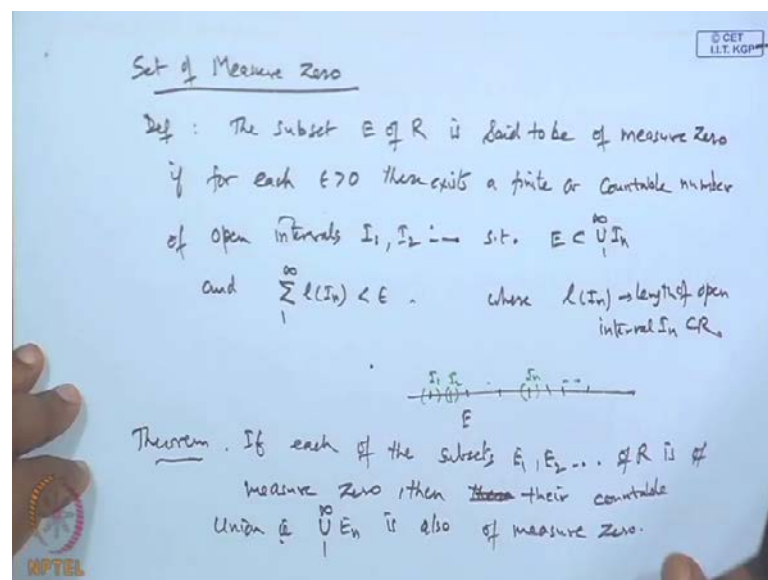 © CET
I.I.T. KGP
Set of Measure Zero
Def : The subset E of R is said to be of measure zero
if for each ε>0 there exists a finite or countable number
of open intervals I₁, I₂ ... s.t. E ⊂ ∞∪1 Iₙ
and ∞Σ1 l(Iₙ) < ε . where l(Iₙ) → length of open
interval Iₙ ⊂ R.
I₁ I₂ ... Iₙ ...
E
Theorem . If each of the subsets E₁, E₂ ... of R is of
measure zero, then their countable
Union ∞∪1 Eₙ is also of measure zero.
NPTEL